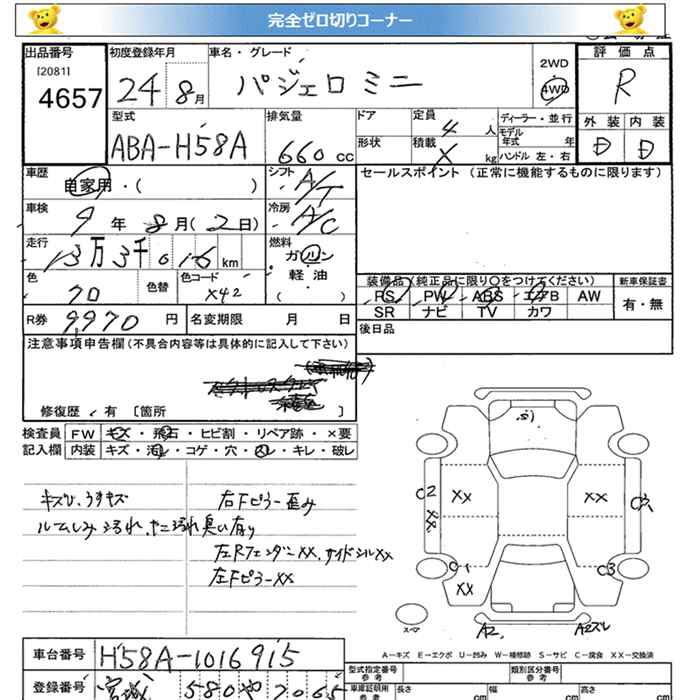 完全ゼロ切りコーナー
出品番号 [2081] 4657
初度登録年月 24年8月
車名・グレード パジェロ ミニ
2WD 4WD
評価点 R
外装 D 内装 D
型式 ABA-H58A
排気量 660 cc
ドア 形状
定員 4人
積載 X kg
ディーラー・並行
モデル年式 年
ハンドル 左・右
車歴 自家用・( )
シフト A/T
セールスポイント (正常に機能するものに限ります)
車検 9年 8月(2日)
冷房 A/C
走行 13万3千016 km
燃料 ガソリン 軽油 ( )
色 クロ 色替 色コード X42
装備品(純正品に限り○をつけてください) 新車保証書
PS PW ABS エアB AW 有・無
SR ナビ TV カワ
R券 9,970円 名変期限 月 日
後日品
注意事項申告欄(不具合内容等は具体的に記入して下さい)
修復歴 有 [箇所 ]
検査員 FW キズ・飛石・ヒビ割・リペア跡・×要
記入欄 内装 キズ・汚レ・コゲ・穴・スレ・キレ・破レ
キズ小、うすキズ 右Fピラー歪み
ルームしみ汚れ、ヤニ汚れ臭い有り
左RフェンダーXX、サイドシルXX
左FピラーXX
C2 XX XX
XX
C1 C3
XX
スペア A2 A2スレ
A-キズ E-エクボ U-凹み W-補修跡 S-サビ C-腐食 XX-交換済
車台番号 H58A-1016915
型式指定番号 参考 類別区分番号 参考
登録番号 宮城 580 や 7065
車庫証明用 参考 長さ cm 幅 cm 高さ cm